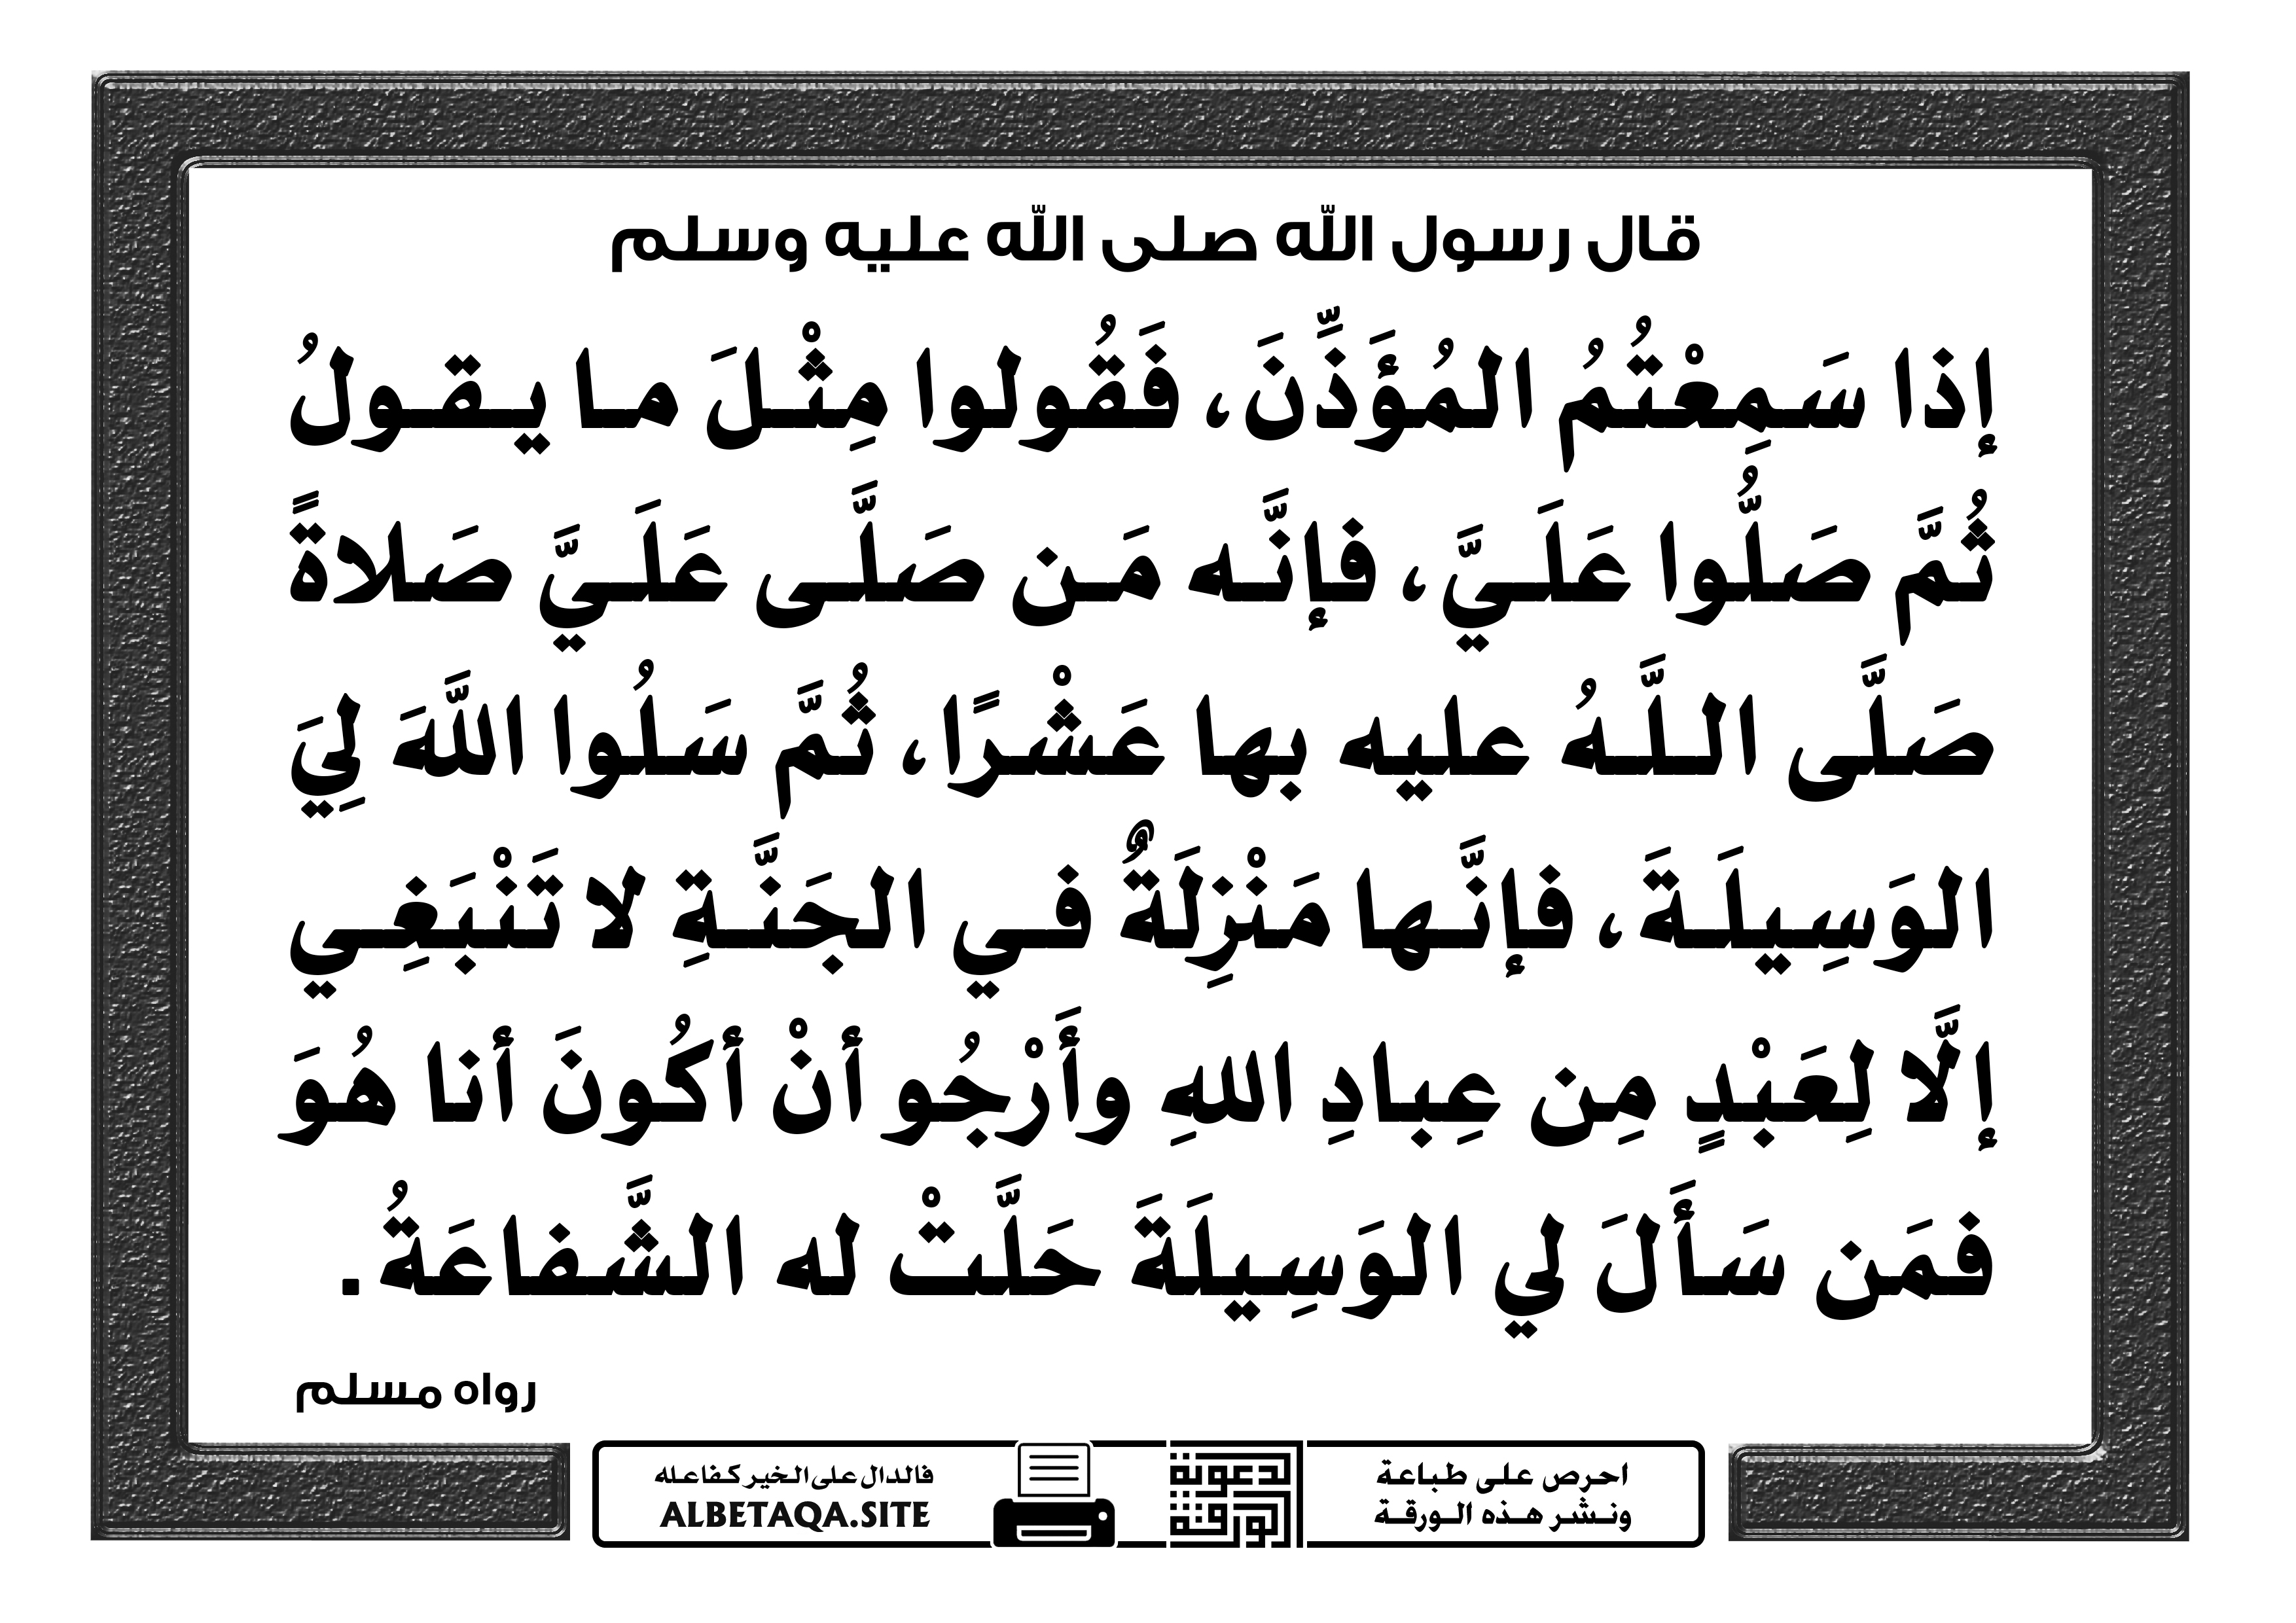 قال رسول الله صلى الله عليه وسلم
إذا سَمِعْتُمُ المُؤَذِّنَ، فَقُولوا مِثْلَ ما يقولُ
ثُمَّ صَلُّوا عَلَيَّ، فإنَّه مَن صَلَّى عَلَيَّ صَلاةً
صَلَّى اللَّهُ عليه بها عَشْرًا، ثُمَّ سَلُوا اللَّهَ لِيَ
الوَسِيلَةَ، فإنَّها مَنْزِلَةٌ في الجَنَّةِ لا تَنْبَغِي
إلَّا لِعَبْدٍ مِن عِبادِ اللهِ وأَرْجُو أنْ أكُونَ أنا هُوَ
فمَن سَأَلَ لي الوَسِيلَةَ حَلَّتْ له الشَّفاعَةُ.
رواه مسلم
احرص على طباعة
ونشر هذه الورقة
الدعوية
الورقة
فالدال على الخير كفاعله
ALBETAQA.SITE